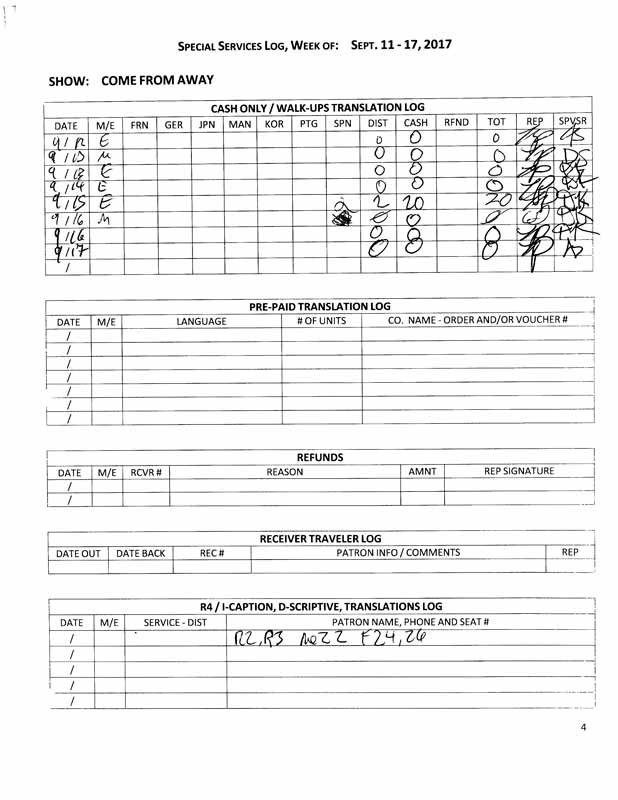 SPECIAL SERVICES LOG, WEEK OF: SEPT. 11 - 17, 2017
SHOW: COME FROM AWAY
CASH ONLY / WALK-UPS TRANSLATION LOG
DATE M/E FRN GER JPN MAN KOR PTG SPN DIST CASH RFND TOT REP SPVSR
9/12 E 0 0 0
9/13 M 0 0 0
9/13 E 0 0 0
9/14 E 0 0 0
9/15 E 2 2 20 20
9/16 M 0 0 0
9/16 0 0 0
9/17 0 0 0
/
PRE-PAID TRANSLATION LOG
DATE M/E LANGUAGE # OF UNITS CO. NAME - ORDER AND/OR VOUCHER #
/
/
/
/
/
/
/
REFUNDS
DATE M/E RCVR # REASON AMNT REP SIGNATURE
/
/
RECEIVER TRAVELER LOG
DATE OUT DATE BACK REC # PATRON INFO / COMMENTS REP
R4 / I-CAPTION, D-SCRIPTIVE, TRANSLATIONS LOG
DATE M/E SERVICE - DIST PATRON NAME, PHONE AND SEAT #
/ R2, R3 Mezz F24, 26
/
/
/
/
4